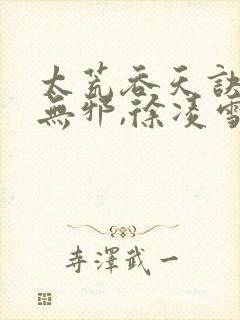 太荒吞天訣
無邪,徐凌雪
寺澤武一